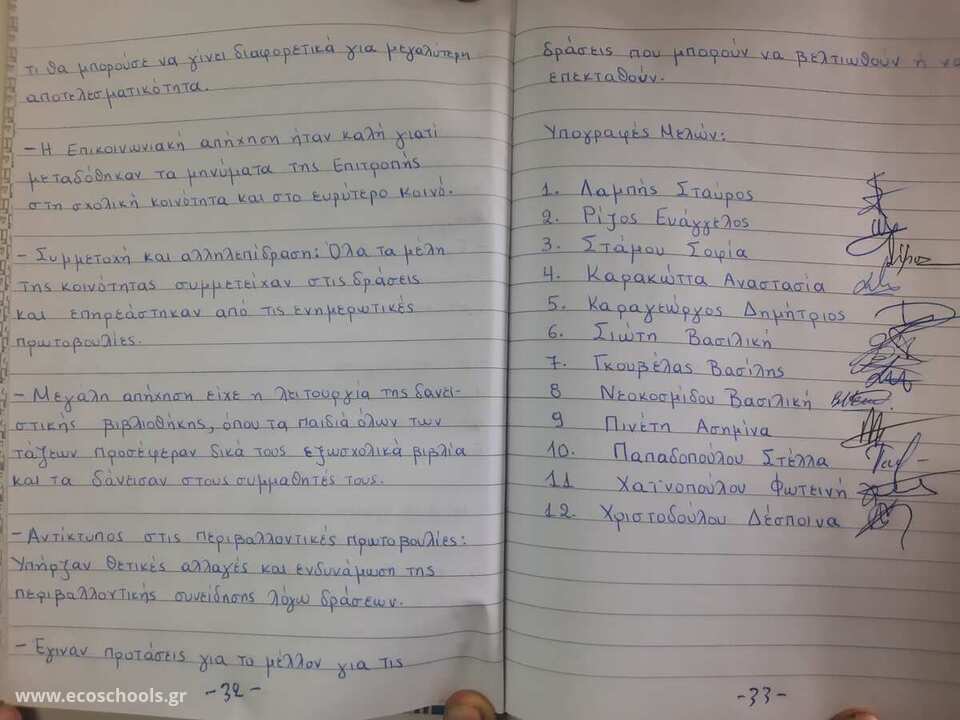 τι θα μπορούσε να γίνει διαφορετικά για μεγαλύτερη
αποτελεσματικότητα.
- Η Επικοινωνιακή απήχηση ήταν καλή γιατί
μεταδόθηκαν τα μηνύματα της Επιτροπής
στη σχολική κοινότητα και στο ευρύτερο κοινό.
- Συμμετοχή και αλληλεπίδραση: Όλα τα μέλη
της κοινότητας συμμετείχαν στις δράσεις
και επηρεάστηκαν από τις ενημερωτικές
πρωτοβουλίες.
- Μεγάλη απήχηση είχε η λειτουργία της δανει-
στικής βιβλιοθήκης, όπου τα παιδιά όλων των
τάξεων προσέφεραν δικά τους εξωσχολικά βιβλία
και τα δάνεισαν στους συμμαθητές τους.
- Αντίκτυπος στις περιβαλλοντικές πρωτοβουλίες:
Υπήρξαν θετικές αλλαγές και ενδυνάμωση της
περιβαλλοντικής συνείδησης λόγω δράσεων.
- Έγιναν προτάσεις για το μέλλον για τις
-32-
www.ecoschools.gr
δράσεις που μπορούν να βελτιωθούν ή να
επεκταθούν.
Υπογραφές Μελών:
1. Λαμπής Σταύρος
2. Ρίζος Ευάγγελος
3. Στάμου Σοφία
4. Καρακώττα Αναστασία
5. Καραγεώργος Δημήτριος
6. Σιώτη Βασιλική
7. Γκουβέλας Βασίλης
8 Νεοκοσμίδου Βασιλική
9 Πινέτη Ασημίνα
10. Παπαδοπούλου Στέλλα
11 Χαϊνοπούλου Φωτεινή
12. Χριστοδούλου Δέσποινα
-33-